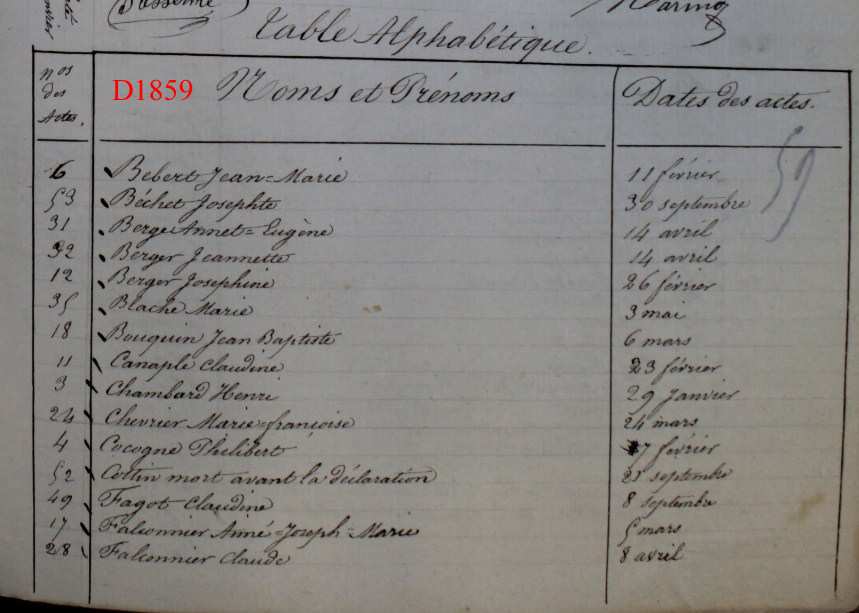 Table Alphabétique.
Nos des Actes. D1859 Noms et Prénoms Dates des actes.
59
6 Bebert Jean=Marie 11 février
53 Béchet Josephte 30 septembre
31 Berger Annet=Eugène 14 avril
32 Berger Jeannette 14 avril
12 Berger Josephine 26 février
35 Blache Marie 3 mai
18 Bouquin Jean Baptiste 6 mars
11 Canaple Claudine 23 février
3 Chambard Henri 29 Janvier
24 Chevrier Marie=françoise 24 mars
4 Cocogne Philibert 7 février
52 Cottin mort avant la déclaration 21 septembre
49 Fagot Claudine 8 septembre
17 Falconnier Aimé=Joseph=Marie 5 mars
28 Falconnier Claude 8 avril